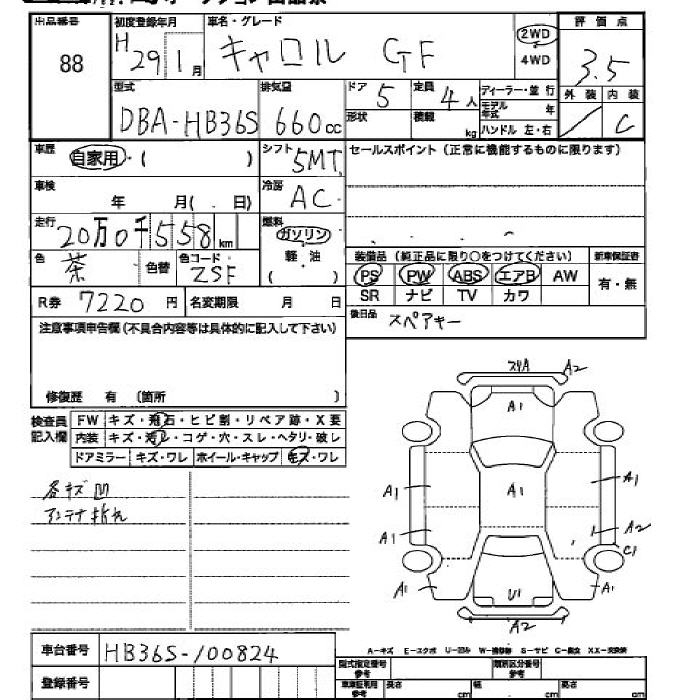 出品番号 初度登録年月 車名・グレード 評価点
88 H 29 1月 キャロル GF 2WD 4WD 3.5
型式 排気量 ドア 定員 ディーラー・並行 外装 内装
DBA-HB36S 660cc 5 4人 モデル年式 年 C
形状 積載 kg ハンドル 左・右
車歴 自家用・( ) シフト 5MT セールスポイント (正常に機能するものに限ります)
車検 年 月( . 日) 冷房 AC
走行 20万0千558km 燃料 ガソリン 軽油 ( )
色 茶 色替 色コード ZSF
装備品 (純正品に限り○をつけてください) 新車保証書
PS PW ABS エアB AW 有・無
SR ナビ TV カワ
R券 7220円 名変期限 月 日
後日品 スペアキー
注意事項申告欄(不具合内容等は具体的に記入して下さい)
修復歴 有 (箇所 )
検査員記入欄 FW キズ・飛石・ヒビ割・リペア跡・X要
内装 キズ・汚レ・コゲ・穴・スレ・ヘタリ・破レ
ドアミラー キズ・ワレ ホイール・キャップ キズ・ワレ
各キズ凹
アンテナ折れ
スリA A2
A1
A1 A1 A1
A1 A2
C1
A1 U1 A1
A2
A-キズ E-エクボ U-凹み W-補修跡 S-サビ C-腐食 XX-交換済
車台番号 HB36S-100824
登録番号
型式指定番号 参考 類別区分番号 参考
車庫証明用 参考 長さ cm 幅 cm 高さ cm